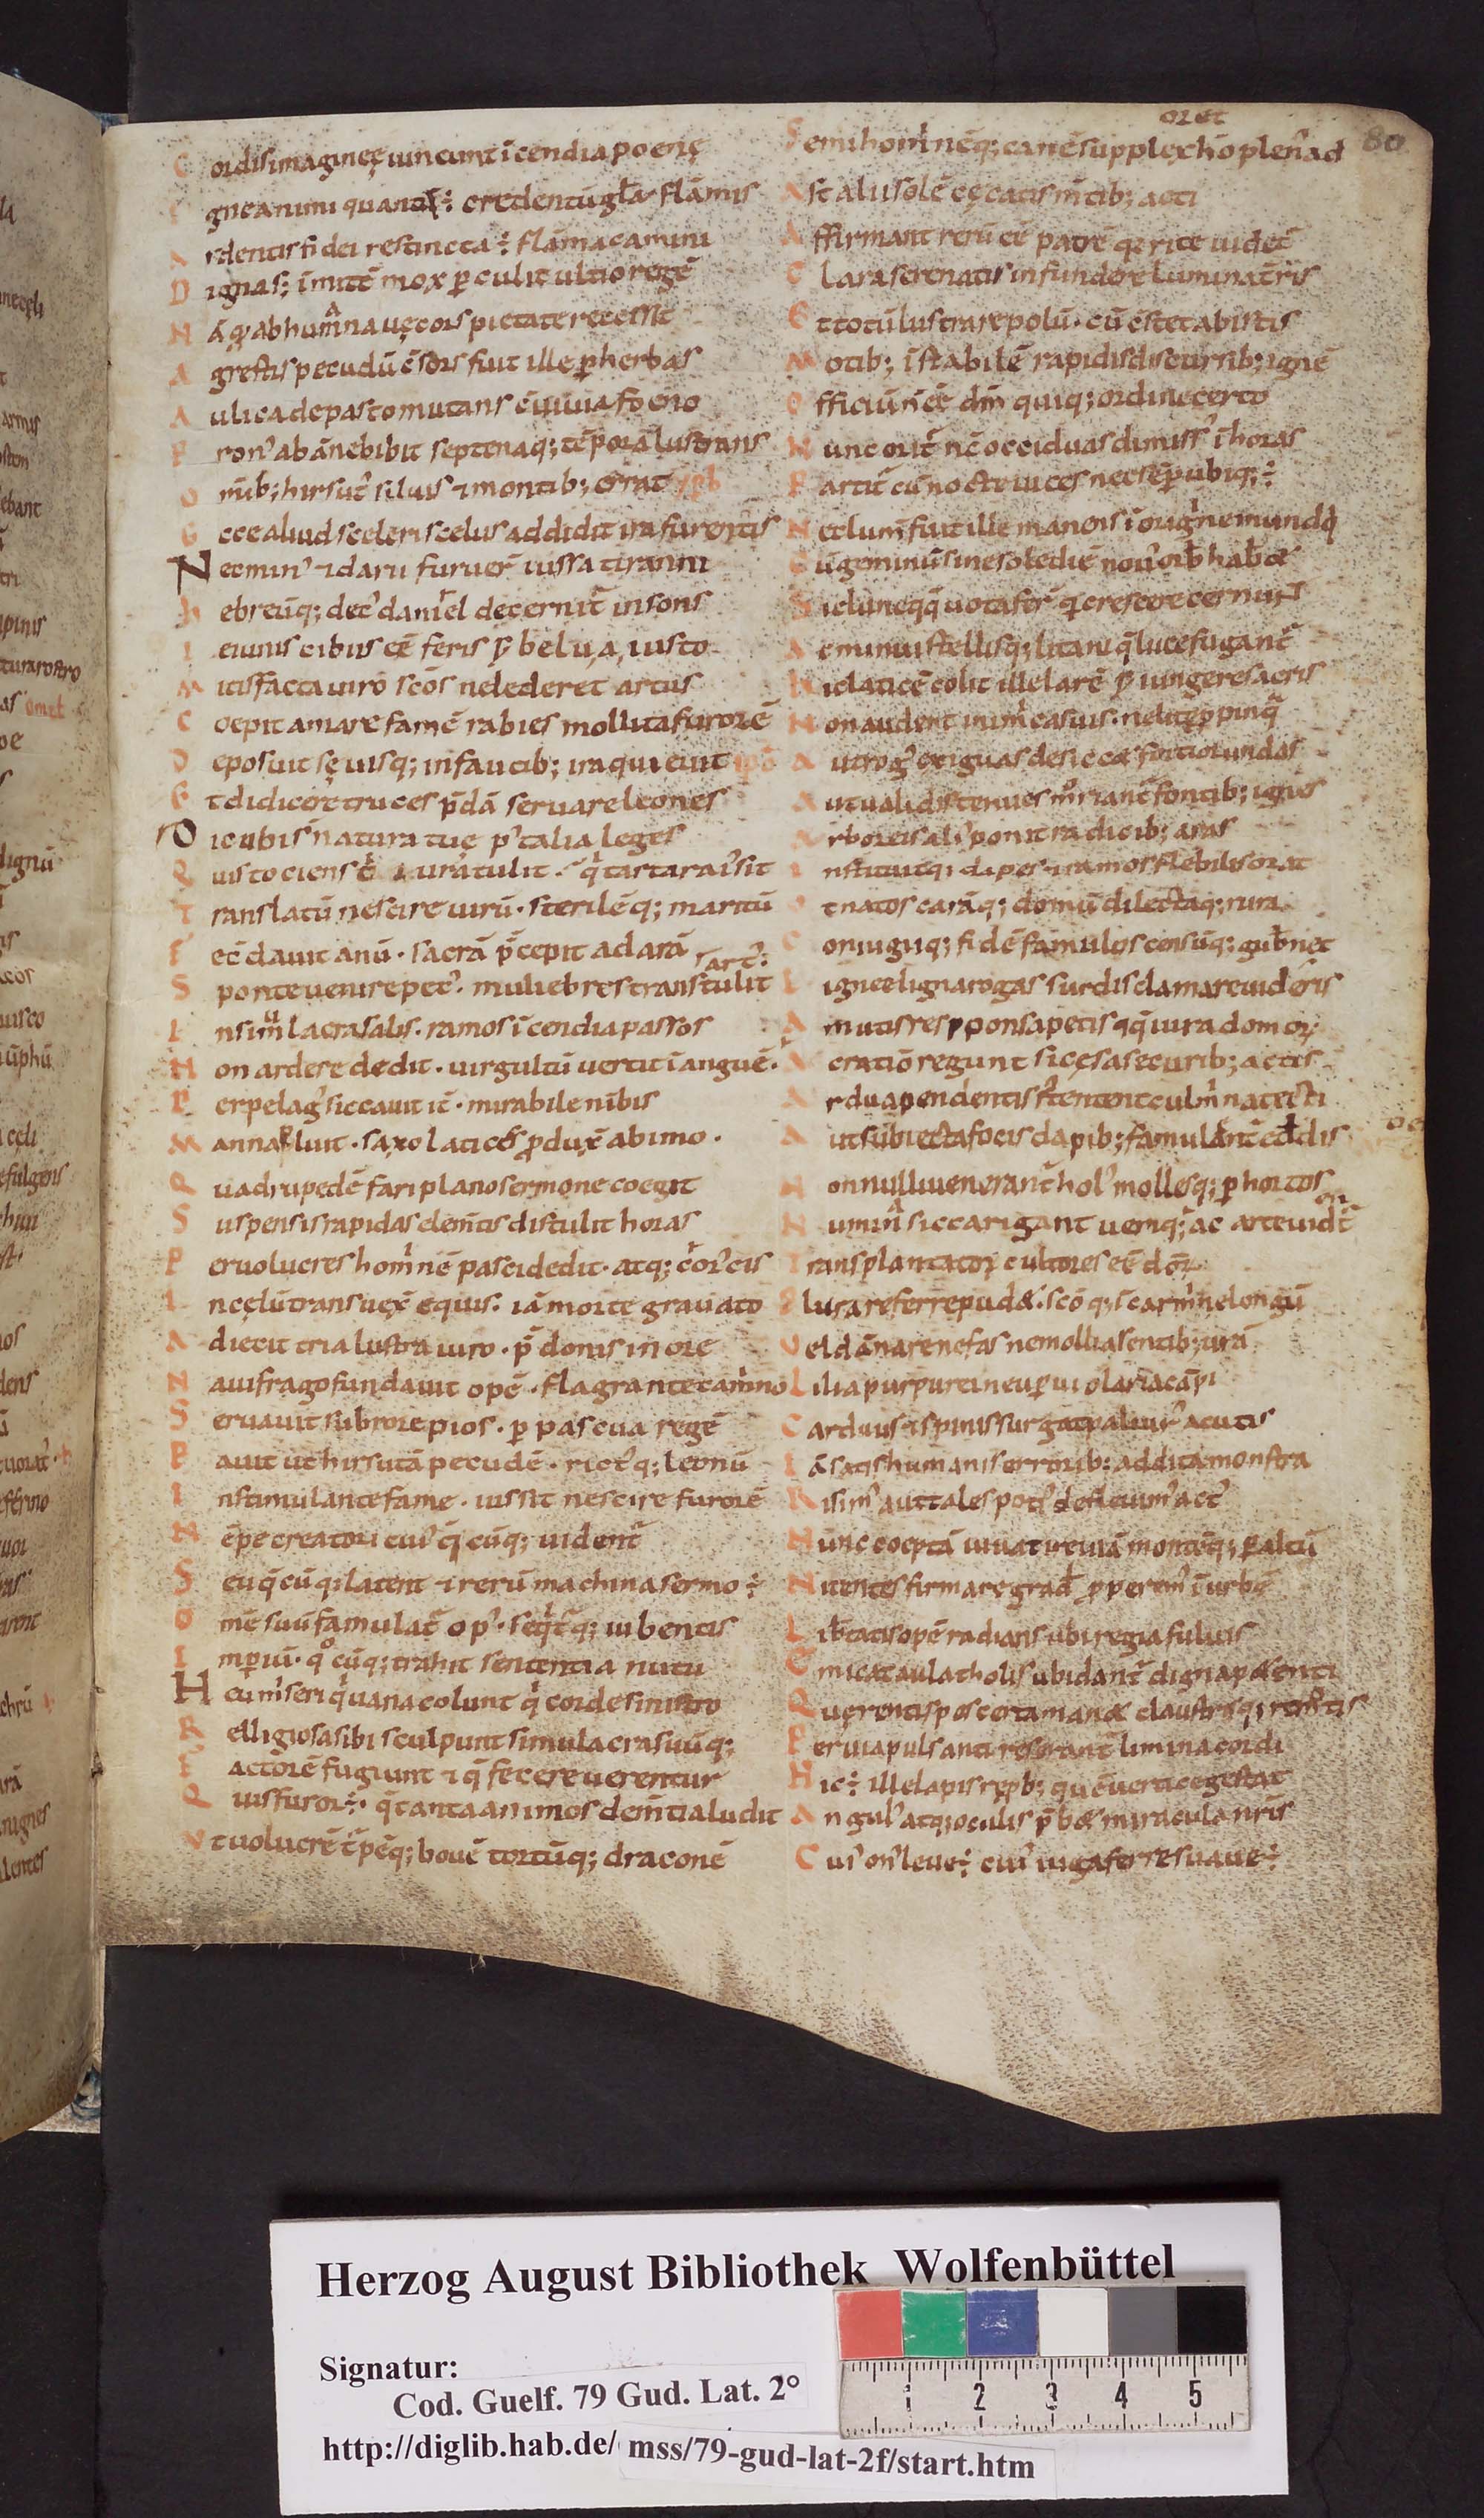 80
C ordis imagineę uincunt īcendia poenę
I gne animi quanto÷ credentū gl̄a flāmis
A rdentis fidei restincta÷ flāma camini
D ignas; īmitē mox ꝑculit ultio regē
N āq; ab humana uęcors pietate recessit
A grestis pecudū c̄sors fuit ille ꝑ herbas
A ulica depasto mutans c̄uiuia foeno
P ron' ab āne bibit septenaq; tēpora lustrans
O mib; hirsut' siluis ⁊ montib; errat
E cce aliud sceleri scelus addidit ira furentis
N ec min' ⁊ darii furuer̄ iussa tiranni
h ebreūq; dec' daniel decernit' insons
I eiunis cibus eē feris ꝓ belua iusto
M itis facta uiro scōs ne lederet artus
C oepit amare famē rabies mollita furorē
D eposuit sęuisq; in faucib; ira quieuit
E t didicere truces p̄dā seruare leones
D ic ubi s̄ natura tuę p' talia leges
Q uis tociens t̄ iura tulit. s; q̄ tartara iusit
T ranslatū nescire uirū. sterilēq; maritū
F ecūdauit anū. sacrā p̄cepit ad arā
art':
S ponte uenire pec'. muliebres transtulit
I n simlacra salis. ramos īcendia passos
N on ardere dedit. uirgultū uertit ī anguē.
P er pelag' siccauit it̄. mirabile nībis
M anna pluit. saxo latices ꝓduxē ab imo.
Q uadrupedē fari plano sermone coegit
S uspensis rapidas elem̄tis distulit horas
P er uolucres hominē pasci dedit. atq; choruscis
I n cęlū transuex̄ equis. iā morte grauato
A diecit tria lustra uiro. p̄donis in ore
N aufrago fundauit opē. flagrante camino
S eruauit sub rore pios. ꝑ pascua regē
P auit ut hirsutā pecudē. rict'q; leonū
I nstimulante fame. iussit nescire furorē
N ēpe creatori cui' q̄cūq; uident'
S eu q̄cūq; latent ⁊ rerū machina sermo÷
O mē suū famulat' op'. seqt'q; iubentis
I mꝑiū. q°cūq; trahit sententia nutu
H eu miseri q̄ uana colunt q̄ corde sinistro
R elligiosa sibi sculpunt simulacra suūq;
F actorē fugiunt ⁊ q̄ fecere uerentur
Q uis furor÷. q̄ tanta animos dem̄tia ludit
V t uolucrē t̄pēq; bouē tortūq; draconē
oret
S emihominēq; canē supplex ho plen' ad
A st alii solē cęcatis m̄tib; acti
A ffirmant rerū eē patrē q; rite uidet'
C lara serenatis infundere lumina t̄ris
E t totū lustrare polū. cū c̄stet abistis
M otib; īstabilē rapidis discursib; ignē
O fficiū n̄ eē dn̄i quiq; ordine certo
N unc orit' nc̄ occiduas dimiss' ī horas
P artit' cū nocte uices nec sēꝑ ubiq;÷
N ec lum̄ fuit ille manens ī origine mundi
C ū geminū sine sole diē nou' orb' habæt
S ic lune qq; uota fer̄t q̄ crescere cernunt
A c minui stellisq; litant q̄ luce fugant'
h ic laticē colit ille larē s; iungere sacris
N on audent inimica suis. ne lite ꝓpinq̄
A ut rog' exiguas desiccæt fortior undas
A ut ualidis tenues moriant' fontib; ignes
A rboreis ali' ponit radicib; aras
I nstituitq; dapes ⁊ ramos flebilis orat
V t natos carāq; domū dilectaq; rura
C oniugiiq; fidē famulos censūq; gub̄net
L ignee ligna rogas surdis clamare uideris
A mutis responsa petis qq; iura domorū
A eratiō regunt sic cęsa securib; actis
A rdua pendentis st̄entent culmina tecti
A ut subiecta focis dapib; famulant' edēdis
N onnulli uenerant' hol' mollesq; ꝑ hortos
N umina sicca rigant uerūq; ac arte uident'
T ransplantatorū cultores eē deorū
P lura referre pudæt. scōq; ī carmine longū
V el dānare nefas ne mollia sentib; ura
L ilia purpureineue ꝑ uiolaria cāpi
C arduus ⁊ spinis surgat paliur' acutis
I ā satis humanis errorib; addita monstra
R isim' aut tales pot' defleuim' act'
N unc coeptā uiuat ueniā montēq; ꝑ altū
N itentes firmare grad' ꝓperem' ī urbē
L ib̄tatis opē radians ubi regia fuluis
E micat aula tholis ubi dant' digna petenti
Q uerentis pos certa manet claustrisq; remotis
P eruia pulsanti reserant' limina cordi
H ic÷ ille lapis repb; quē uertice gestat
A ngul' atq; oculis p̄bæt miracula nr̄is
C ui' on' leue÷ cui' iuga ferre suaue÷
Herzog August Bibliothek Wolfenbüttel
Signatur:
Cod. Guelf. 79 Gud. Lat. 2°
http://diglib.hab.de/ mss/79-gud-lat-2f/start.htm
1 2 3 4 5